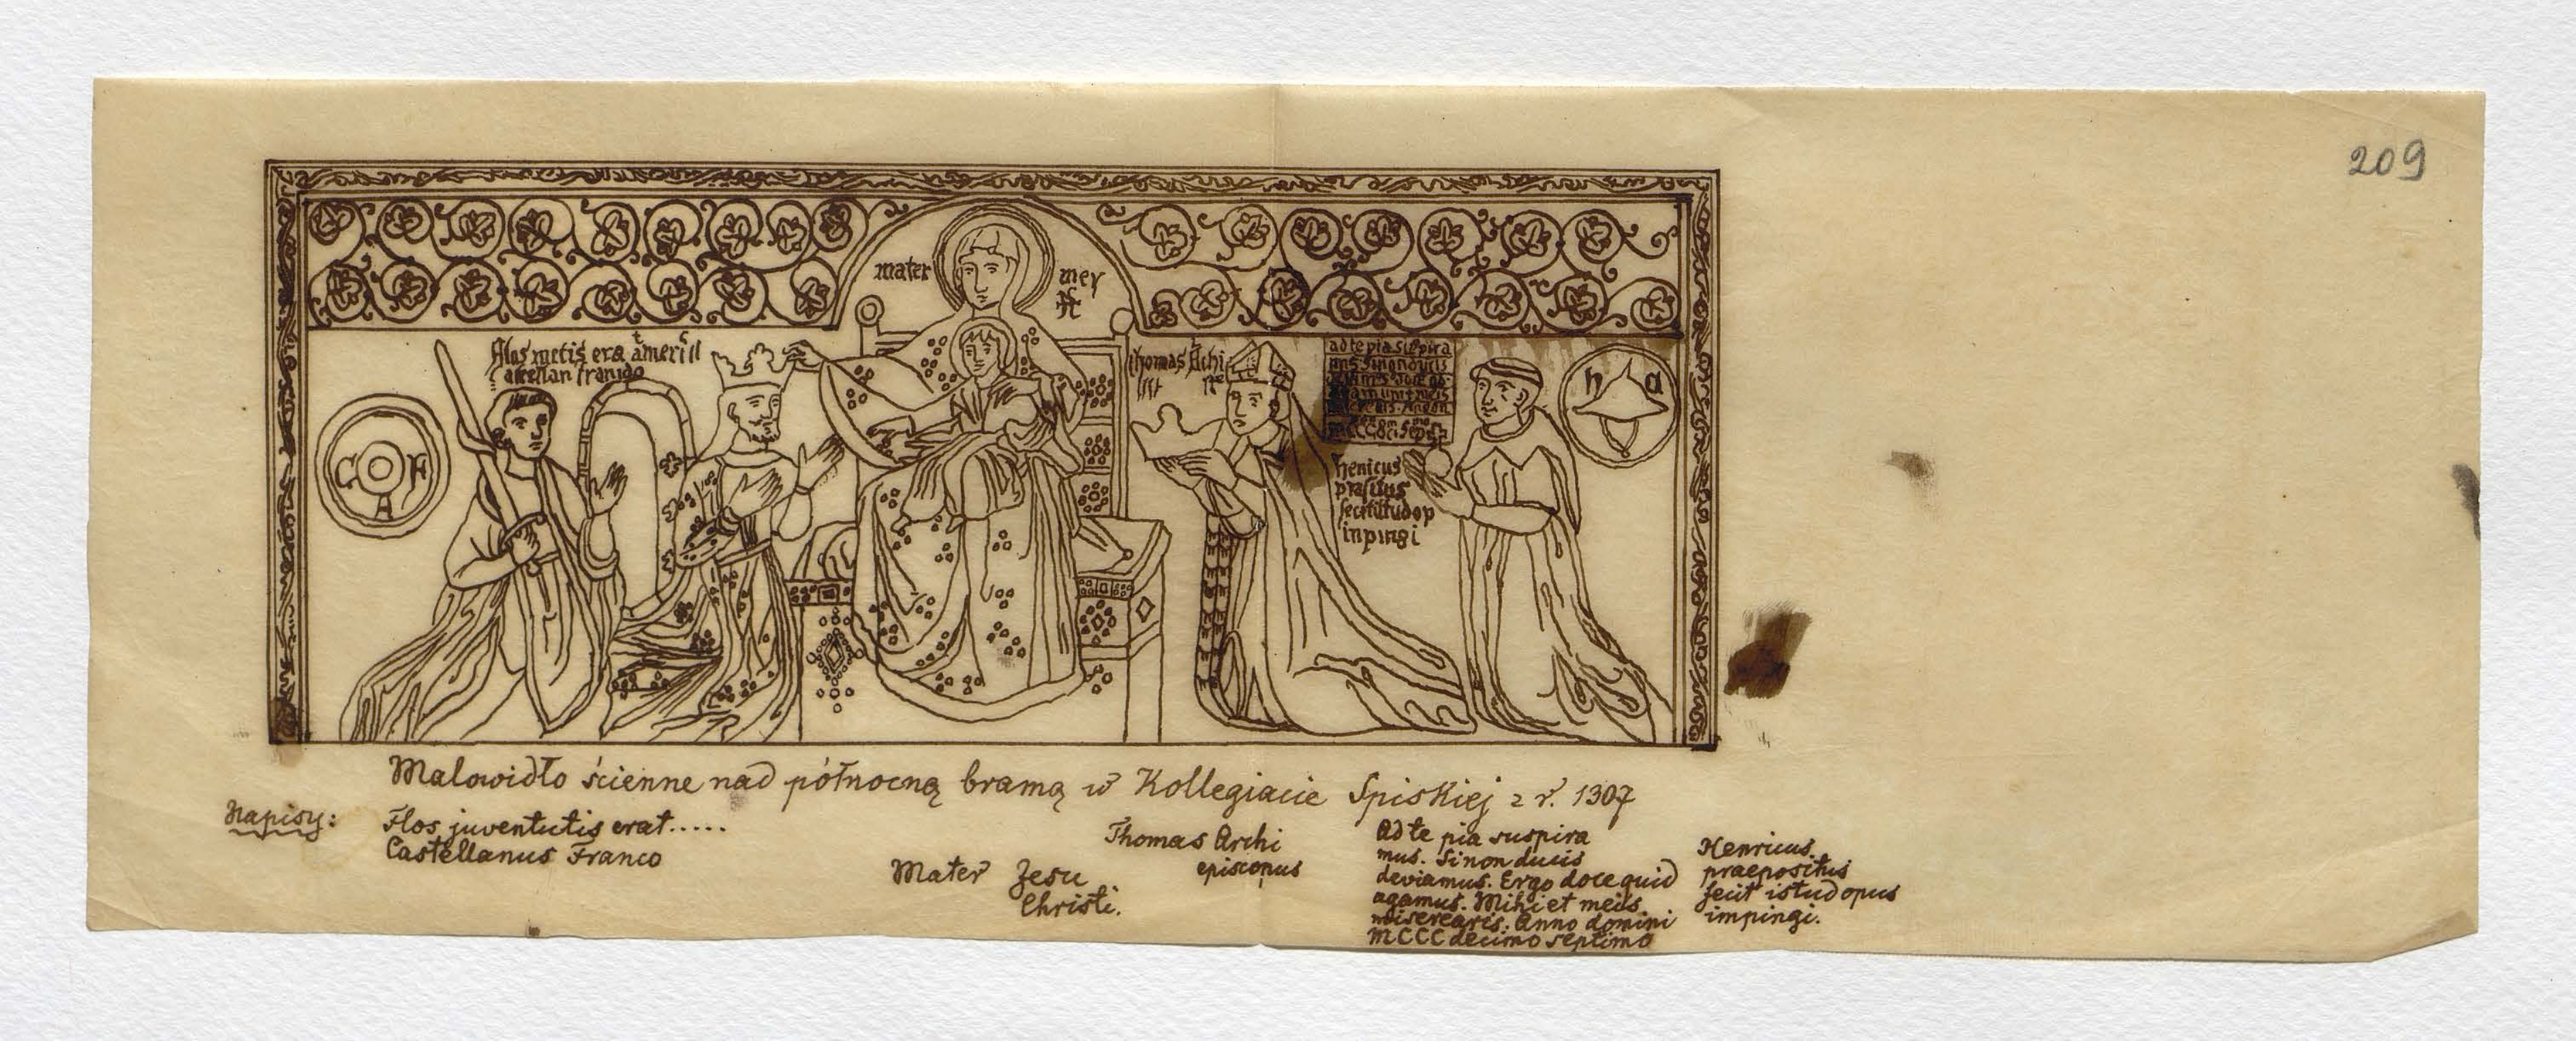 209
mater mey
flos
C F A
thomas Archi
ad te pia suspira
h a
henicus
inpingi
Malowidło ścienne nad północną bramą w Kollegiacie Spiskiej z r. 1307
Napisy:
Flos juventutis erat.....
Castellanus Franco
Mater Jesu
Christi.
Thomas Archi
episcopus
Ad te pia suspira
mus. Si non ducis
deviamus. Ergo doce quid
agamus. Mihi et meis
miserearis. Anno domini
MCCC decimo septimo
Henricus
praepositus
fecit istud opus
impingi.